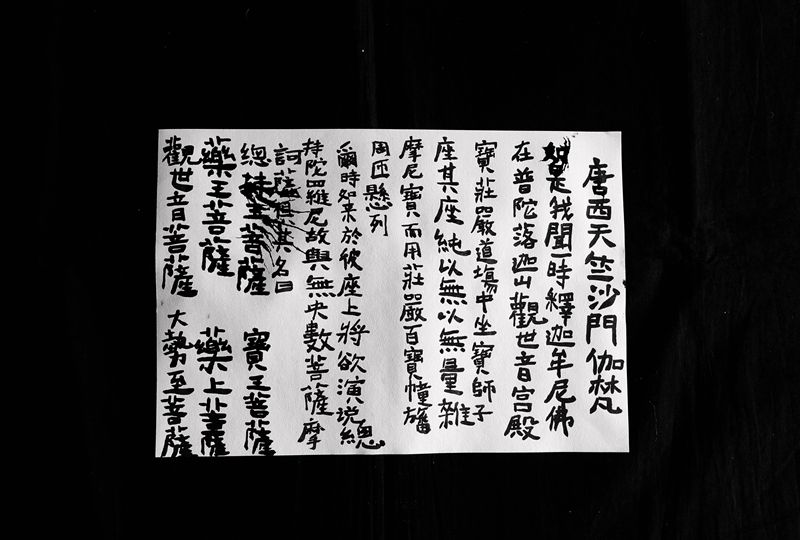 唐西天竺沙門伽梵
如是我聞一時釋迦牟尼佛
在普陀落迦山觀世音宮殿
寶莊嚴道場中坐寶師子
座其座純以無以無量雜
摩尼寶而用莊嚴百寶幢旛
周匝懸列
爾時如來於彼座上將欲演説總
持陀羅尼故與無央數菩薩摩
訶薩俱其名曰
總持王菩薩 寶王菩薩
藥王菩薩 藥上菩薩
觀世音菩薩 大勢至菩薩